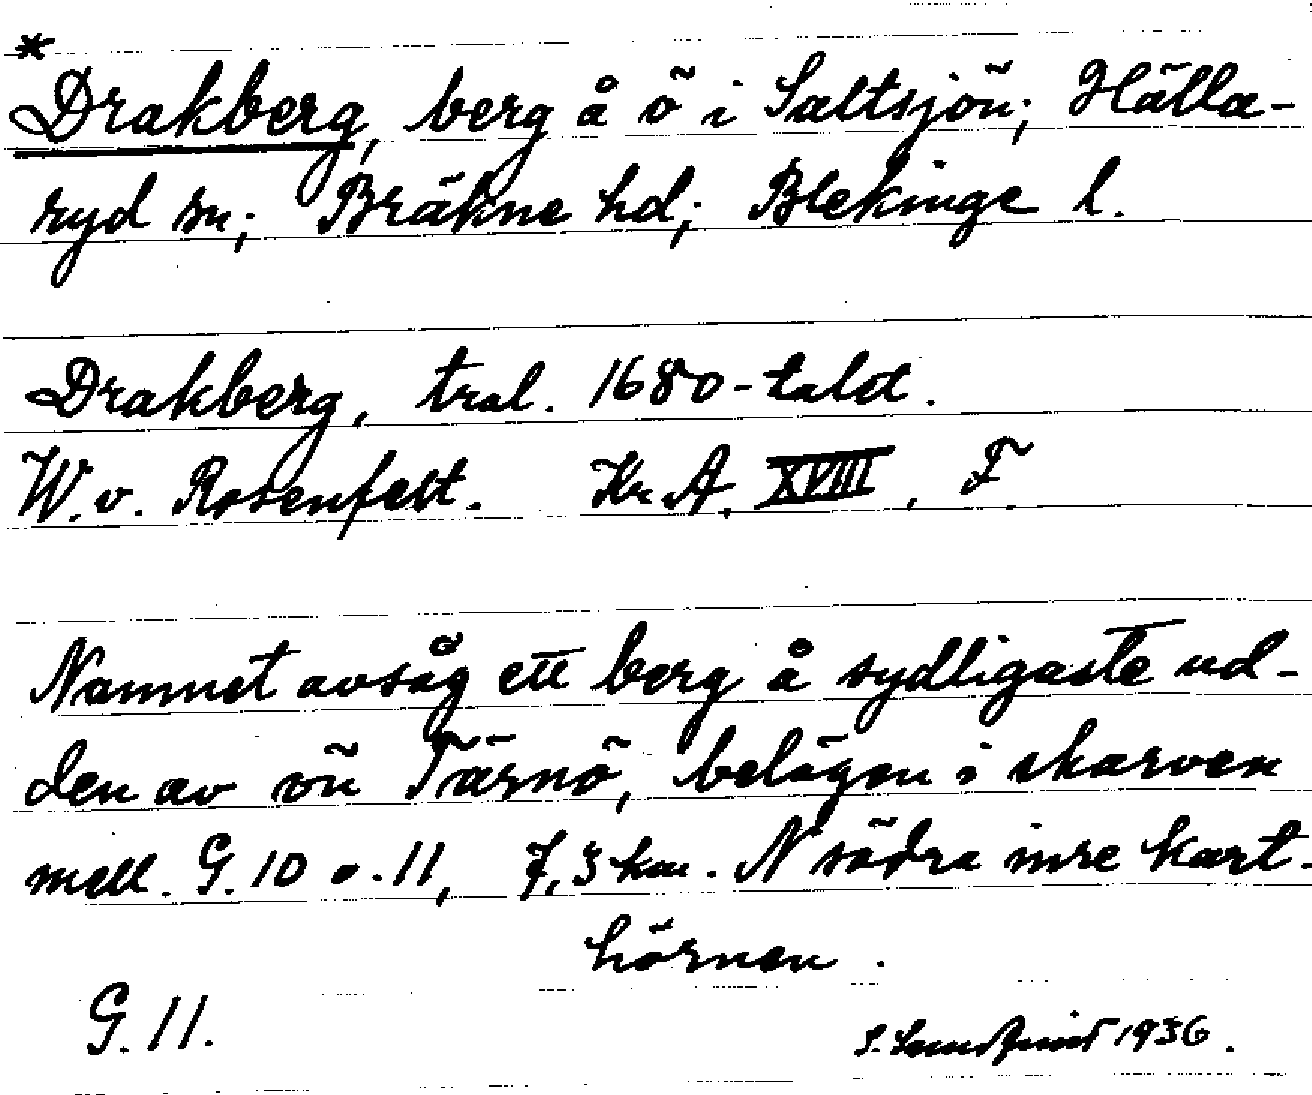 * Drakberg, berg å ö i Saltsjön; Hälla-
ryd sn; Bräkne hd; Blekinge l.
Drakberg, tral. 1680-talet.
W. v. Rosenfelt. Kr. A. XVIII, F
Namnet avsåg ett berg å sydligaste ud-
den av ön Tärnö, belägen i skarven
mell. G. 10 o. 11, 7,3 km. N södra inre kart-
hörnen.
G. 11.
1936.